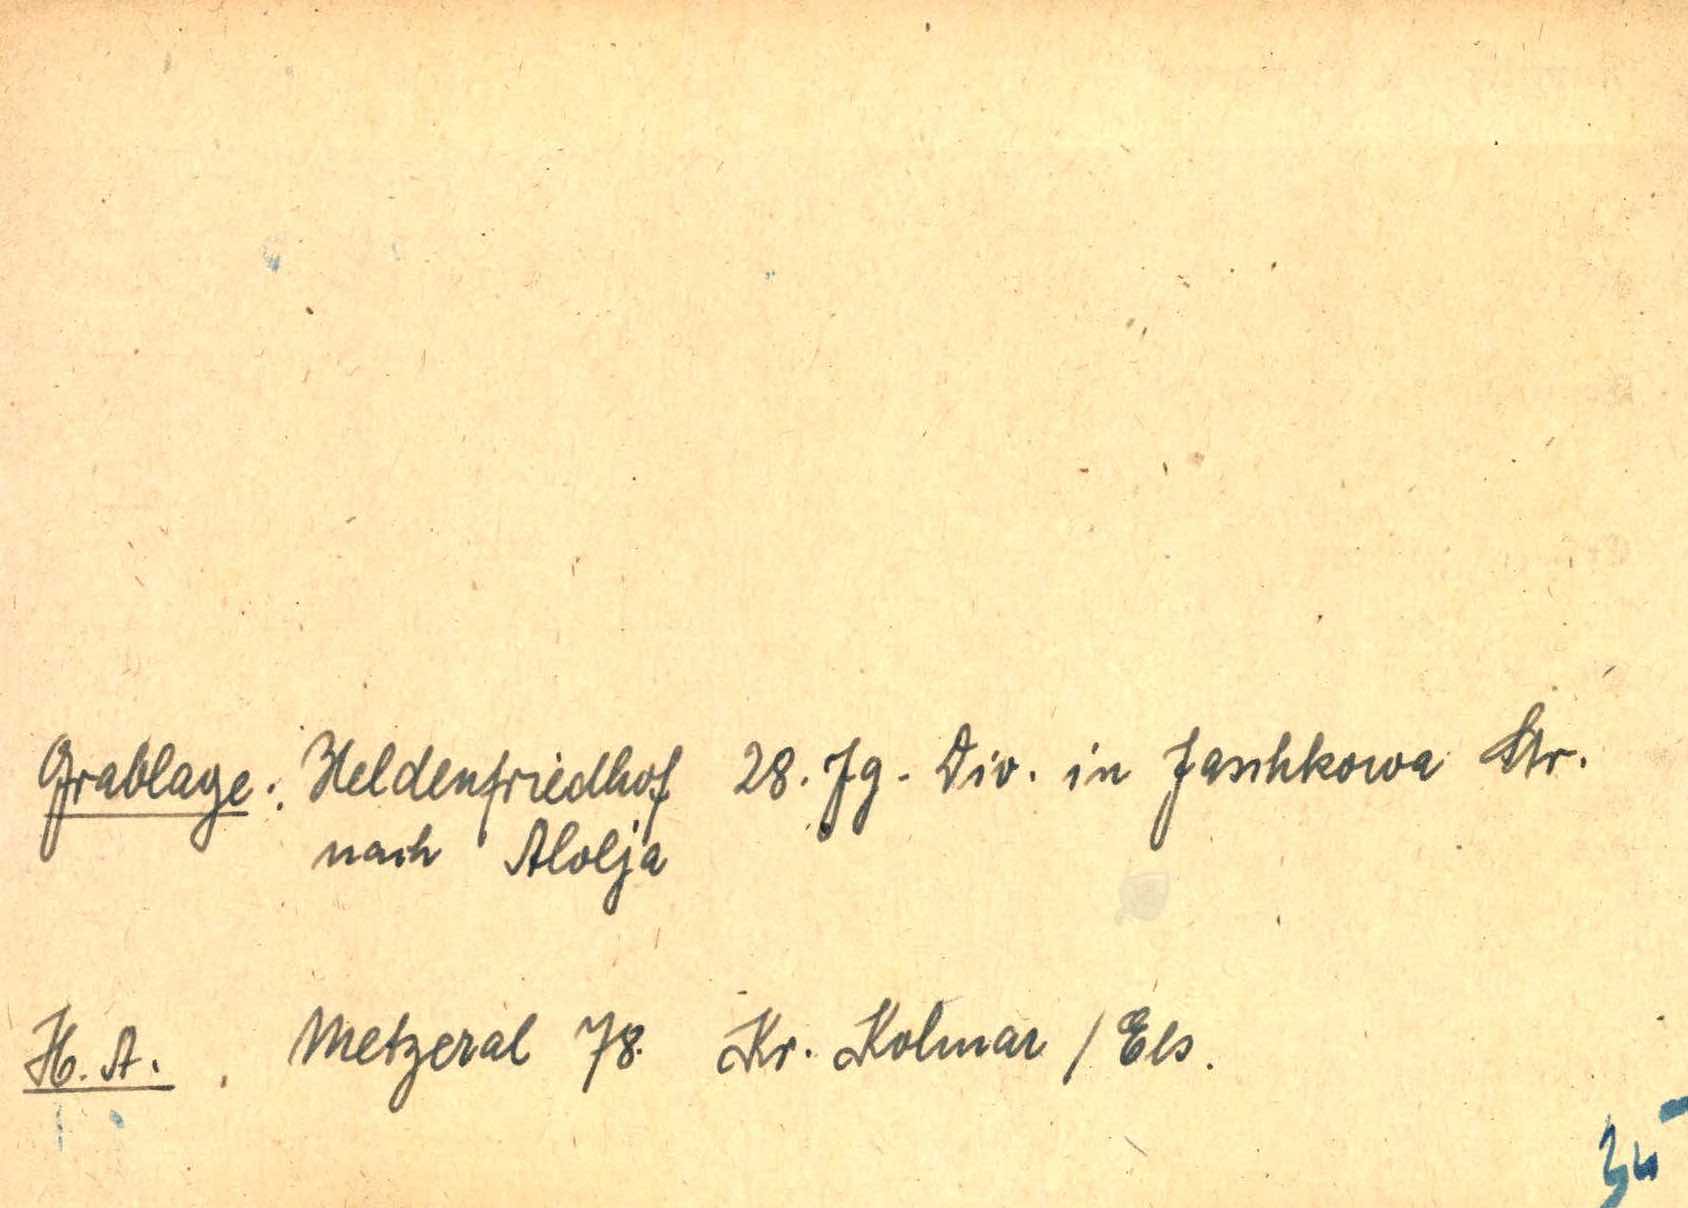 Grablage: Heldenfriedhof 28. Jg. Div. in Jaschkowa Str.
nach Alolja
H. A. Metzeral 78. Kr. Kolmar / Els.